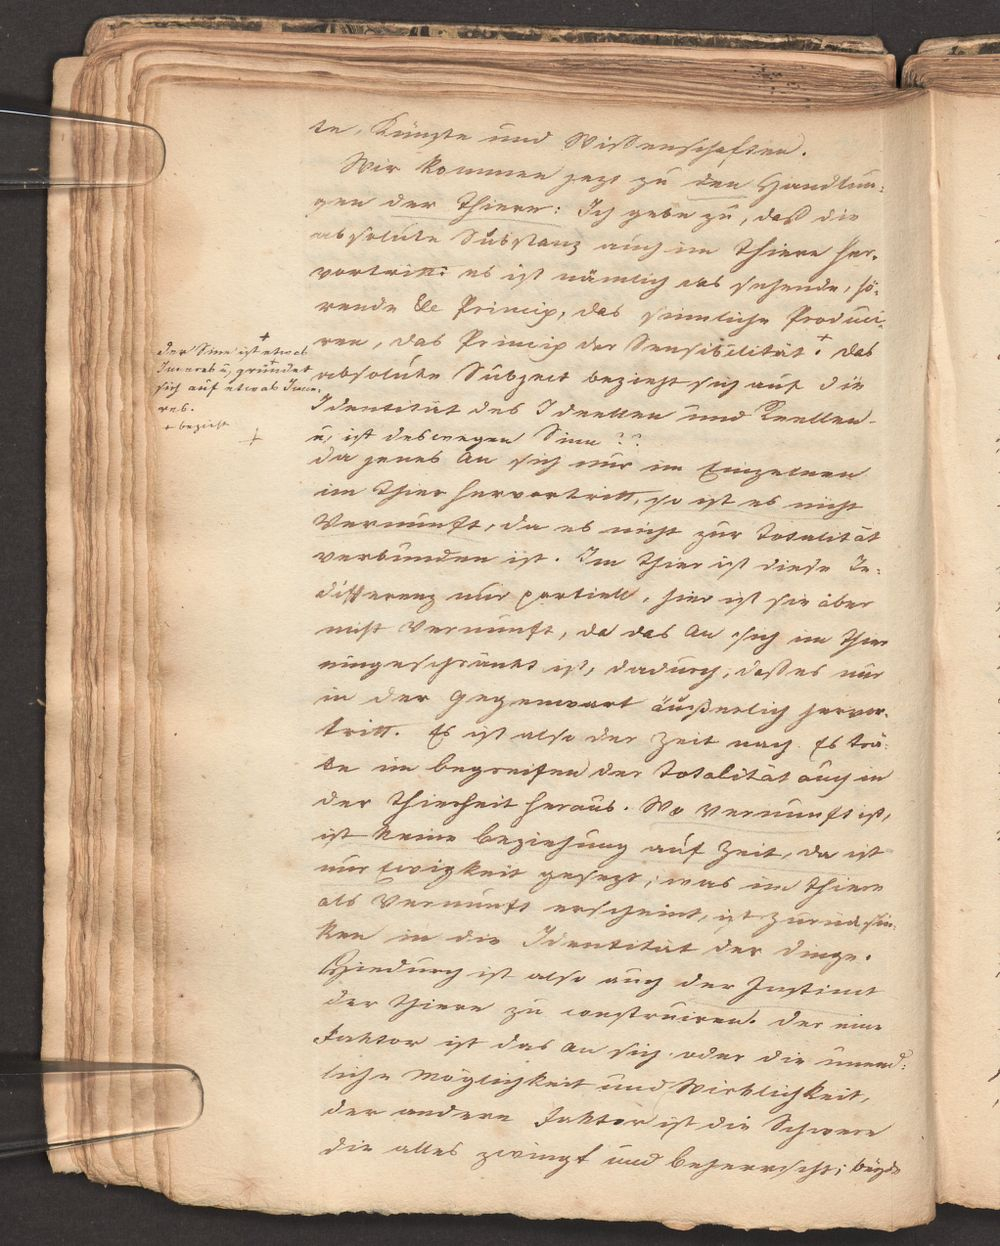 te, Künste und Wissenschaften.
Wir kommen jezt zu den Handlun-
gen der Thiere: Ich gebe zu, daß die
absolute Substanz auch im Thiere her-
vortritt: es ist nämlich das sehende, hö-
rende &c Princip, das sinnliche Produci-
ren, das Princip der Sensibilität. + Das
absolute Subject bezieht sich auf die
Identität des Ideellen und Reellen
u, ist deswegen Sinn ??
da jenes An sich nur im Einzelnen
im Thier hervortritt, so ist es nicht
Vernunft, da es nicht zur Totalität
verbunden ist. Im Thier ist diese In-
differenz nur partiell, hier ist sie aber
nicht Vernunft, da das An sich im Thier
eingeschränkt ist, dadurch, daß es nur
in der Gegenwart äußerlich hervor-
tritt. Es ist also der Zeit nach. Es trä-
te im begreifen der Totalität auch in
der Thierheit heraus. Wo Vernunft ist,
ist keine Beziehung auf Zeit, da ist
nur Ewigkeit gesezt; was im Thiere
als Vernunft erscheint, ist Zurücksin-
ken in die Identität der Dinge.
Hiedurch ist also auch der Instinct
der Thiere zu construiren. Der eine
Faktor ist das An sich oder die unend-
liche Möglichkeit und Wirklichkeit,
der andere Faktor ist die Schwere
die alles zwingt und beherrscht; beyde
+
der Sinn ist etwas
Inneres u, gründet
sich auf etwas Inne-
res.
+ bezieht
+